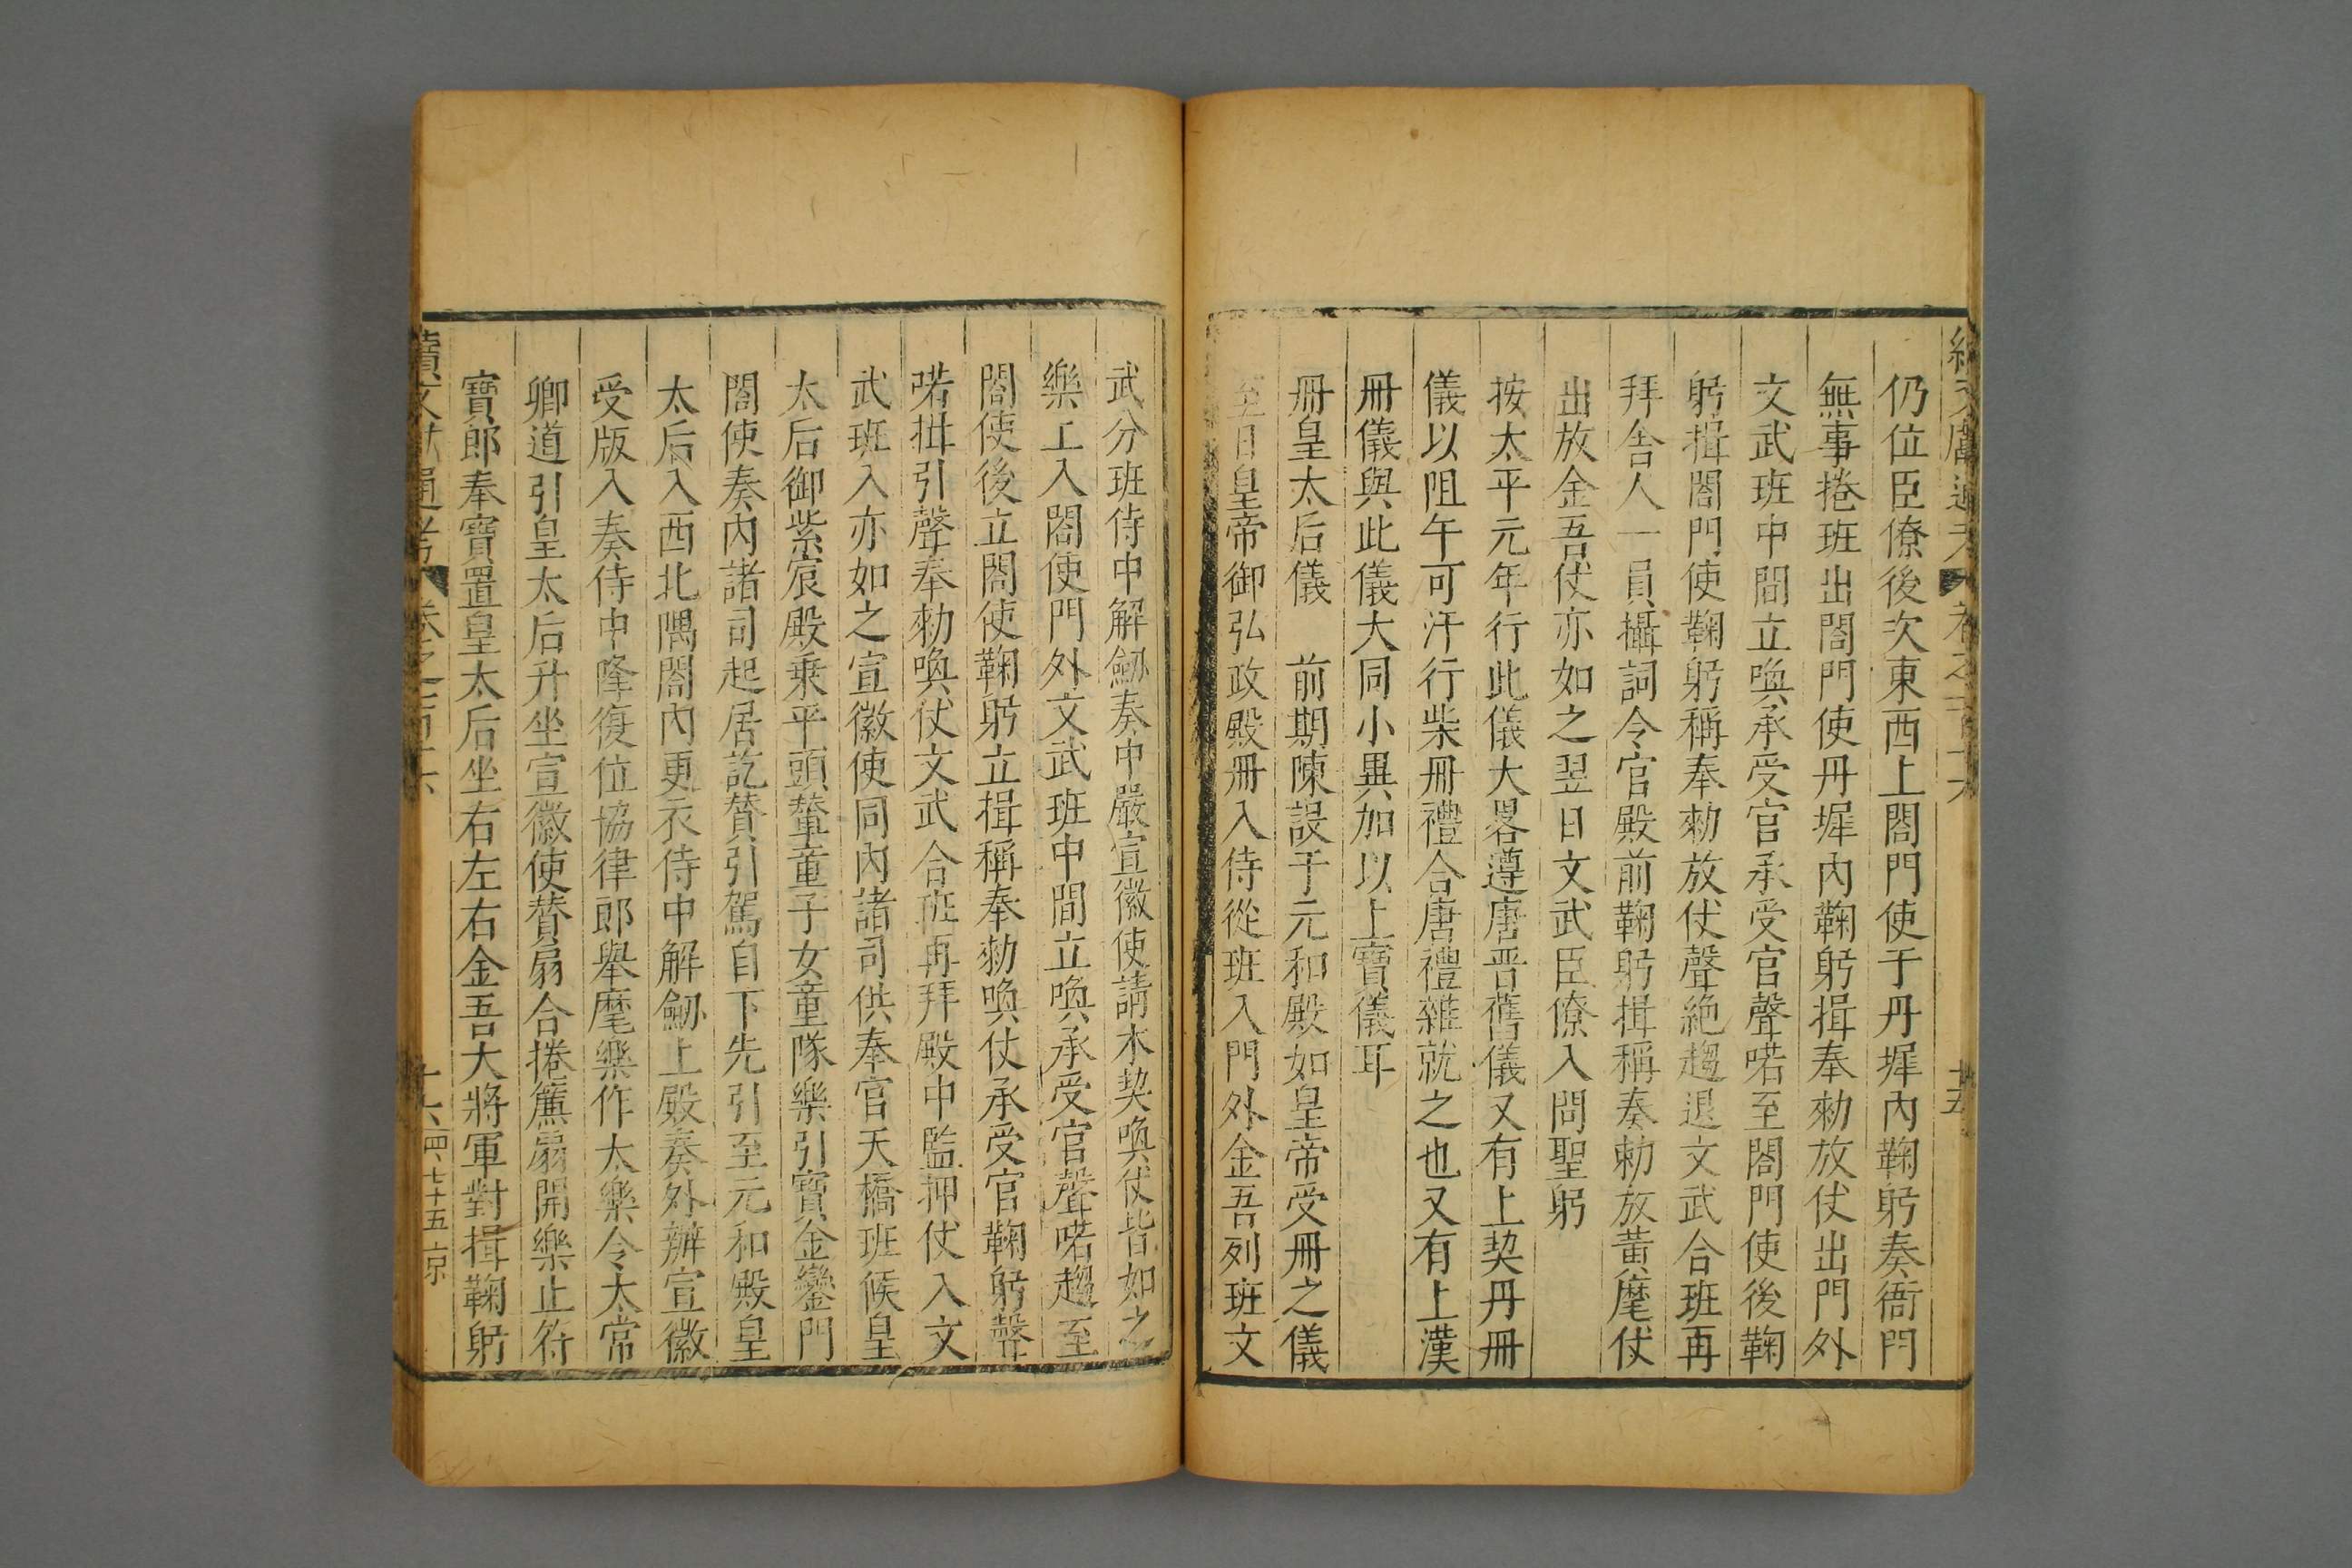 仍位臣僚後次東西上閤門使于丹墀內鞠躬奏衙門
無事捲班出閤門使丹墀內鞠躬揖奉勑放仗出門外
文武班中間立喚承受官承受官聲喏至閤門使後鞠
躬揖閤門使鞠躬稱奉勑放仗聲絕趨退文武合班再
拜舎人一員攝詞令官殿前鞠躬揖稱奏勅放黃麾仗
出放金吾仗亦如之翌日文武臣僚入問聖躬
按太平元年行此儀大畧遵唐晋舊儀又有上契丹冊
儀以阻午可汗行柴冊禮合唐禮雜就之也又有上漢
冊儀與此儀大同小異加以上寶儀耳
冊皇太后儀　前期陳設于元和殿如皇帝受冊之儀
至日皇帝御弘政殿冊入侍從班入門外金吾列班文
武分班侍中解劒奏中嚴宣徽使請木契喚仗皆如之
樂工入閤使門外文武班中間立喚承受官聲喏趨至
閤使後立閤使鞠躬立揖稱奉勑喚仗承受官鞠躬聲
喏揖引聲奉勑喚仗文武合班再拜殿中監押仗入文
武班入亦如之宣徽使同內諸司供奉官天橋班候皇
太后御紫宸殿乘平頭輦童子女童隊樂引寶金鑾門
閤使奏內諸司起居訖賛引駕自下先引至元和殿皇
太后入西北隅閤內更衣侍中解劒上殿奏外辦宣徽
受版入奏侍中降復位協律郎舉麾樂作太樂令太常
卿道引皇太后升坐宣徽使賛扇合捲簾扇開樂止符
寶郎奉寶置皇太后坐右左右金吾大將軍對揖鞠躬
續文獻通考　卷之一百十六　十六　四七十五　京